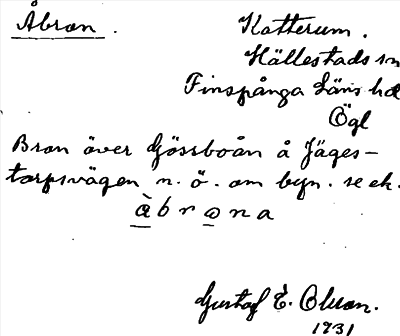 Åbron.
Katterum.
Hällestads sn
Finspånga Läns hd
Ögl
Bron över Gössboån å Jäges-
torpsvägen n. ö. om byn. se ek.
àbrona
Gustaf E. Olson.
1931